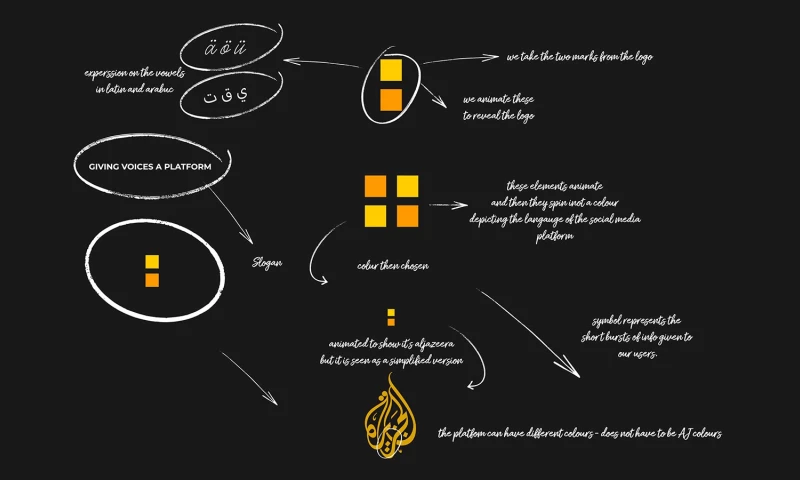 ä ö ü
ي ق ت
experssion on the vowels
in latin and arabuc
we take the two marks from the logo
we animate these
to reveal the logo
GIVING VOICES A PLATFORM
these elements animate
and then they spin inot a colour
depicting the langauge of the social media
platform
Slogan
colur then chosen
symbol represents the
short bursts of info given to
our users.
animated to show it's aljazeera
but it is seen as a simplified version
الجزيرة
the platfom can have different colours - does not have to be AJ colours